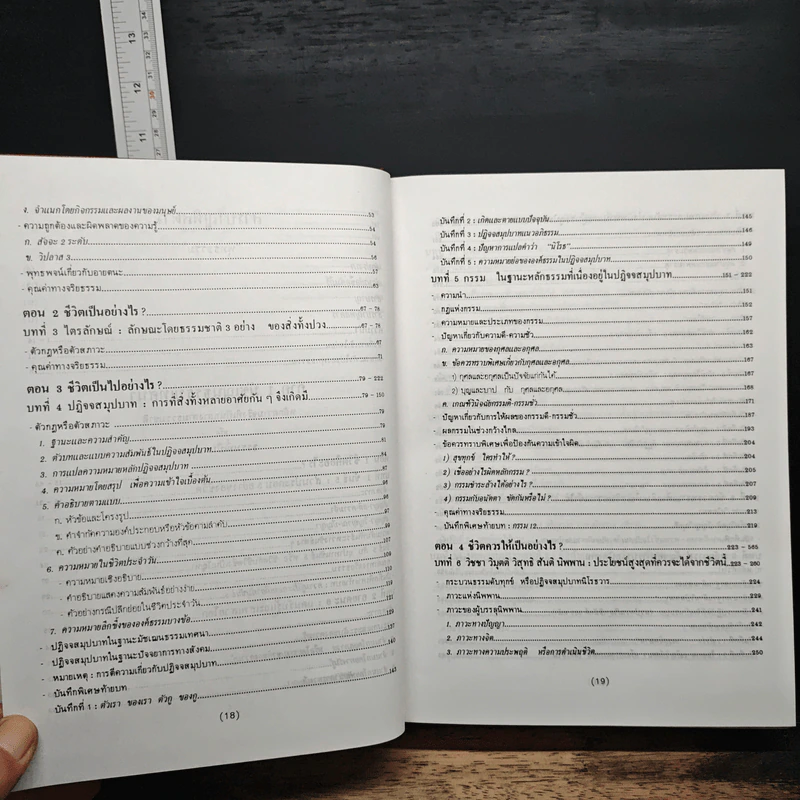 13
12
11
ง. จำแนกโดยกิจกรรมและผลงานของมนุษย์ 53
- ความถูกต้องและผิดพลาดของความรู้ 54
ก. สัจจะ 2 ระดับ 54
ข. วิปลาส 3 56
- พุทธพจน์เกี่ยวกับอายตนะ 57
- คุณค่าทางจริยธรรม 65
ตอน 2 ชีวิตเป็นอย่างไร ? 67 - 78
บทที่ 3 ไตรลักษณ์ : ลักษณะโดยธรรมชาติ 3 อย่าง ของสิ่งทั้งปวง 67 - 78
- ตัวกฎหรือตัวสภาวะ
- คุณค่าทางจริยธรรม 71
ตอน 3 ชีวิตเป็นไปอย่างไร ? 79 - 222
บทที่ 4 ปฏิจจสมุปบาท : การที่สิ่งทั้งหลายอาศัยกัน ๆ จึงเกิดมี 79 - 150
- ตัวกฎหรือตัวสภาวะ 79
1. ฐานะและความสำคัญ 79
2. ตัวบทและแบบความสัมพันธ์ในปฏิจจสมุปบาท
3. การแปลความหมายหลักปฏิจจสมุปบาท
4. ความหมายโดยสรุป เพื่อความเข้าใจเบื้องต้น
5. คำอธิบายตามแบบ
ก. หัวข้อและโครงรูป
ข. คำจำกัดความองค์ประกอบหรือหัวข้อตามลำดับ
ค. ตัวอย่างคำอธิบายแบบช่วงกว้างที่สุด
6. ความหมายในชีวิตประจำวัน
- ความหมายเชิงอธิบาย
- คำอธิบายแสดงความสัมพันธ์อย่างง่าย
- ตัวอย่างกรณีปลีกย่อยในชีวิตประจำวัน
7. ความหมายลึกซึ้งขององค์ธรรมบางข้อ
- ปฏิจจสมุปบาทในฐานะมัชเฌนธรรมเทศนา
- ปฏิจจสมุปบาทในฐานะปัจจยาการทางสังคม
- หมายเหตุ : การตีความเกี่ยวกับปฏิจจสมุปบาท 140
- บันทึกพิเศษท้ายบท
บันทึกที่ 1 : ตัวเรา ของเรา ตัวกู ของกู 143
(18)
บันทึกที่ 2 : เกิดและตายแบบปัจจุบัน 145
บันทึกที่ 3 : ปฏิจจสมุปบาทแนวอภิธรรม 146
บันทึกที่ 4 : ปัญหาการแปลคำว่า "นิโรธ" 149
บันทึกที่ 5 : ความหมายย่อขององค์ธรรมในปฏิจจสมุปบาท 150
บทที่ 5 กรรม ในฐานะหลักธรรมที่เนื่องอยู่ในปฏิจจสมุปบาท 151 - 222
- ความนำ 151
- กฎแห่งกรรม 152
- ความหมายและประเภทของกรรม 157
- ปัญหาเกี่ยวกับความดี-ความชั่ว 162
ก. ความหมายของกุศลและอกุศล
ข. ข้อควรทราบพิเศษเกี่ยวกับกุศลและอกุศล
1) กุศลและอกุศลเป็นปัจจัยแก่กันได้
2) บุญและบาป กับ กุศลและอกุศล 168
ค. เกณฑ์วินิจฉัยกรรมดี-กรรมชั่ว 171
- ปัญหาเกี่ยวกับการให้ผลของกรรมดี-กรรมชั่ว
- ผลกรรมในช่วงกว้างไกล
- ข้อควรทราบเพื่อป้องกันความเข้าใจผิด 204
1) สุขทุกข์ ใครทำให้ ? 204
2) เชื่ออย่างไรผิดหลักกรรม ? 205
3) กรรมชำระล้างได้อย่างไร ? 207
4) กรรมกับอนัตตา ขัดกันหรือไม่ ? 209
- คุณค่าทางจริยธรรม 213
- บันทึกพิเศษท้ายบท : กรรม 12 219
ตอน 4 ชีวิตควรให้เป็นอย่างไร ? 223 - 565
บทที่ 6 วิชชา วิมุตติ วิสุทธิ สันติ นิพพาน : ประโยชน์สูงสุดที่ควรจะได้จากชีวิตนี้ 223 - 260
- กระบวนธรรมดับทุกข์ หรือปฏิจจสมุปบาทนิโรธวาร 224
- ภาวะแห่งนิพพาน 229
- ภาวะของผู้บรรลุนิพพาน 241
1. ภาวะทางปัญญา 242
2. ภาวะทางจิต 244
3. ภาวะทางความประพฤติ หรือการดำเนินชีวิต 250
(19)